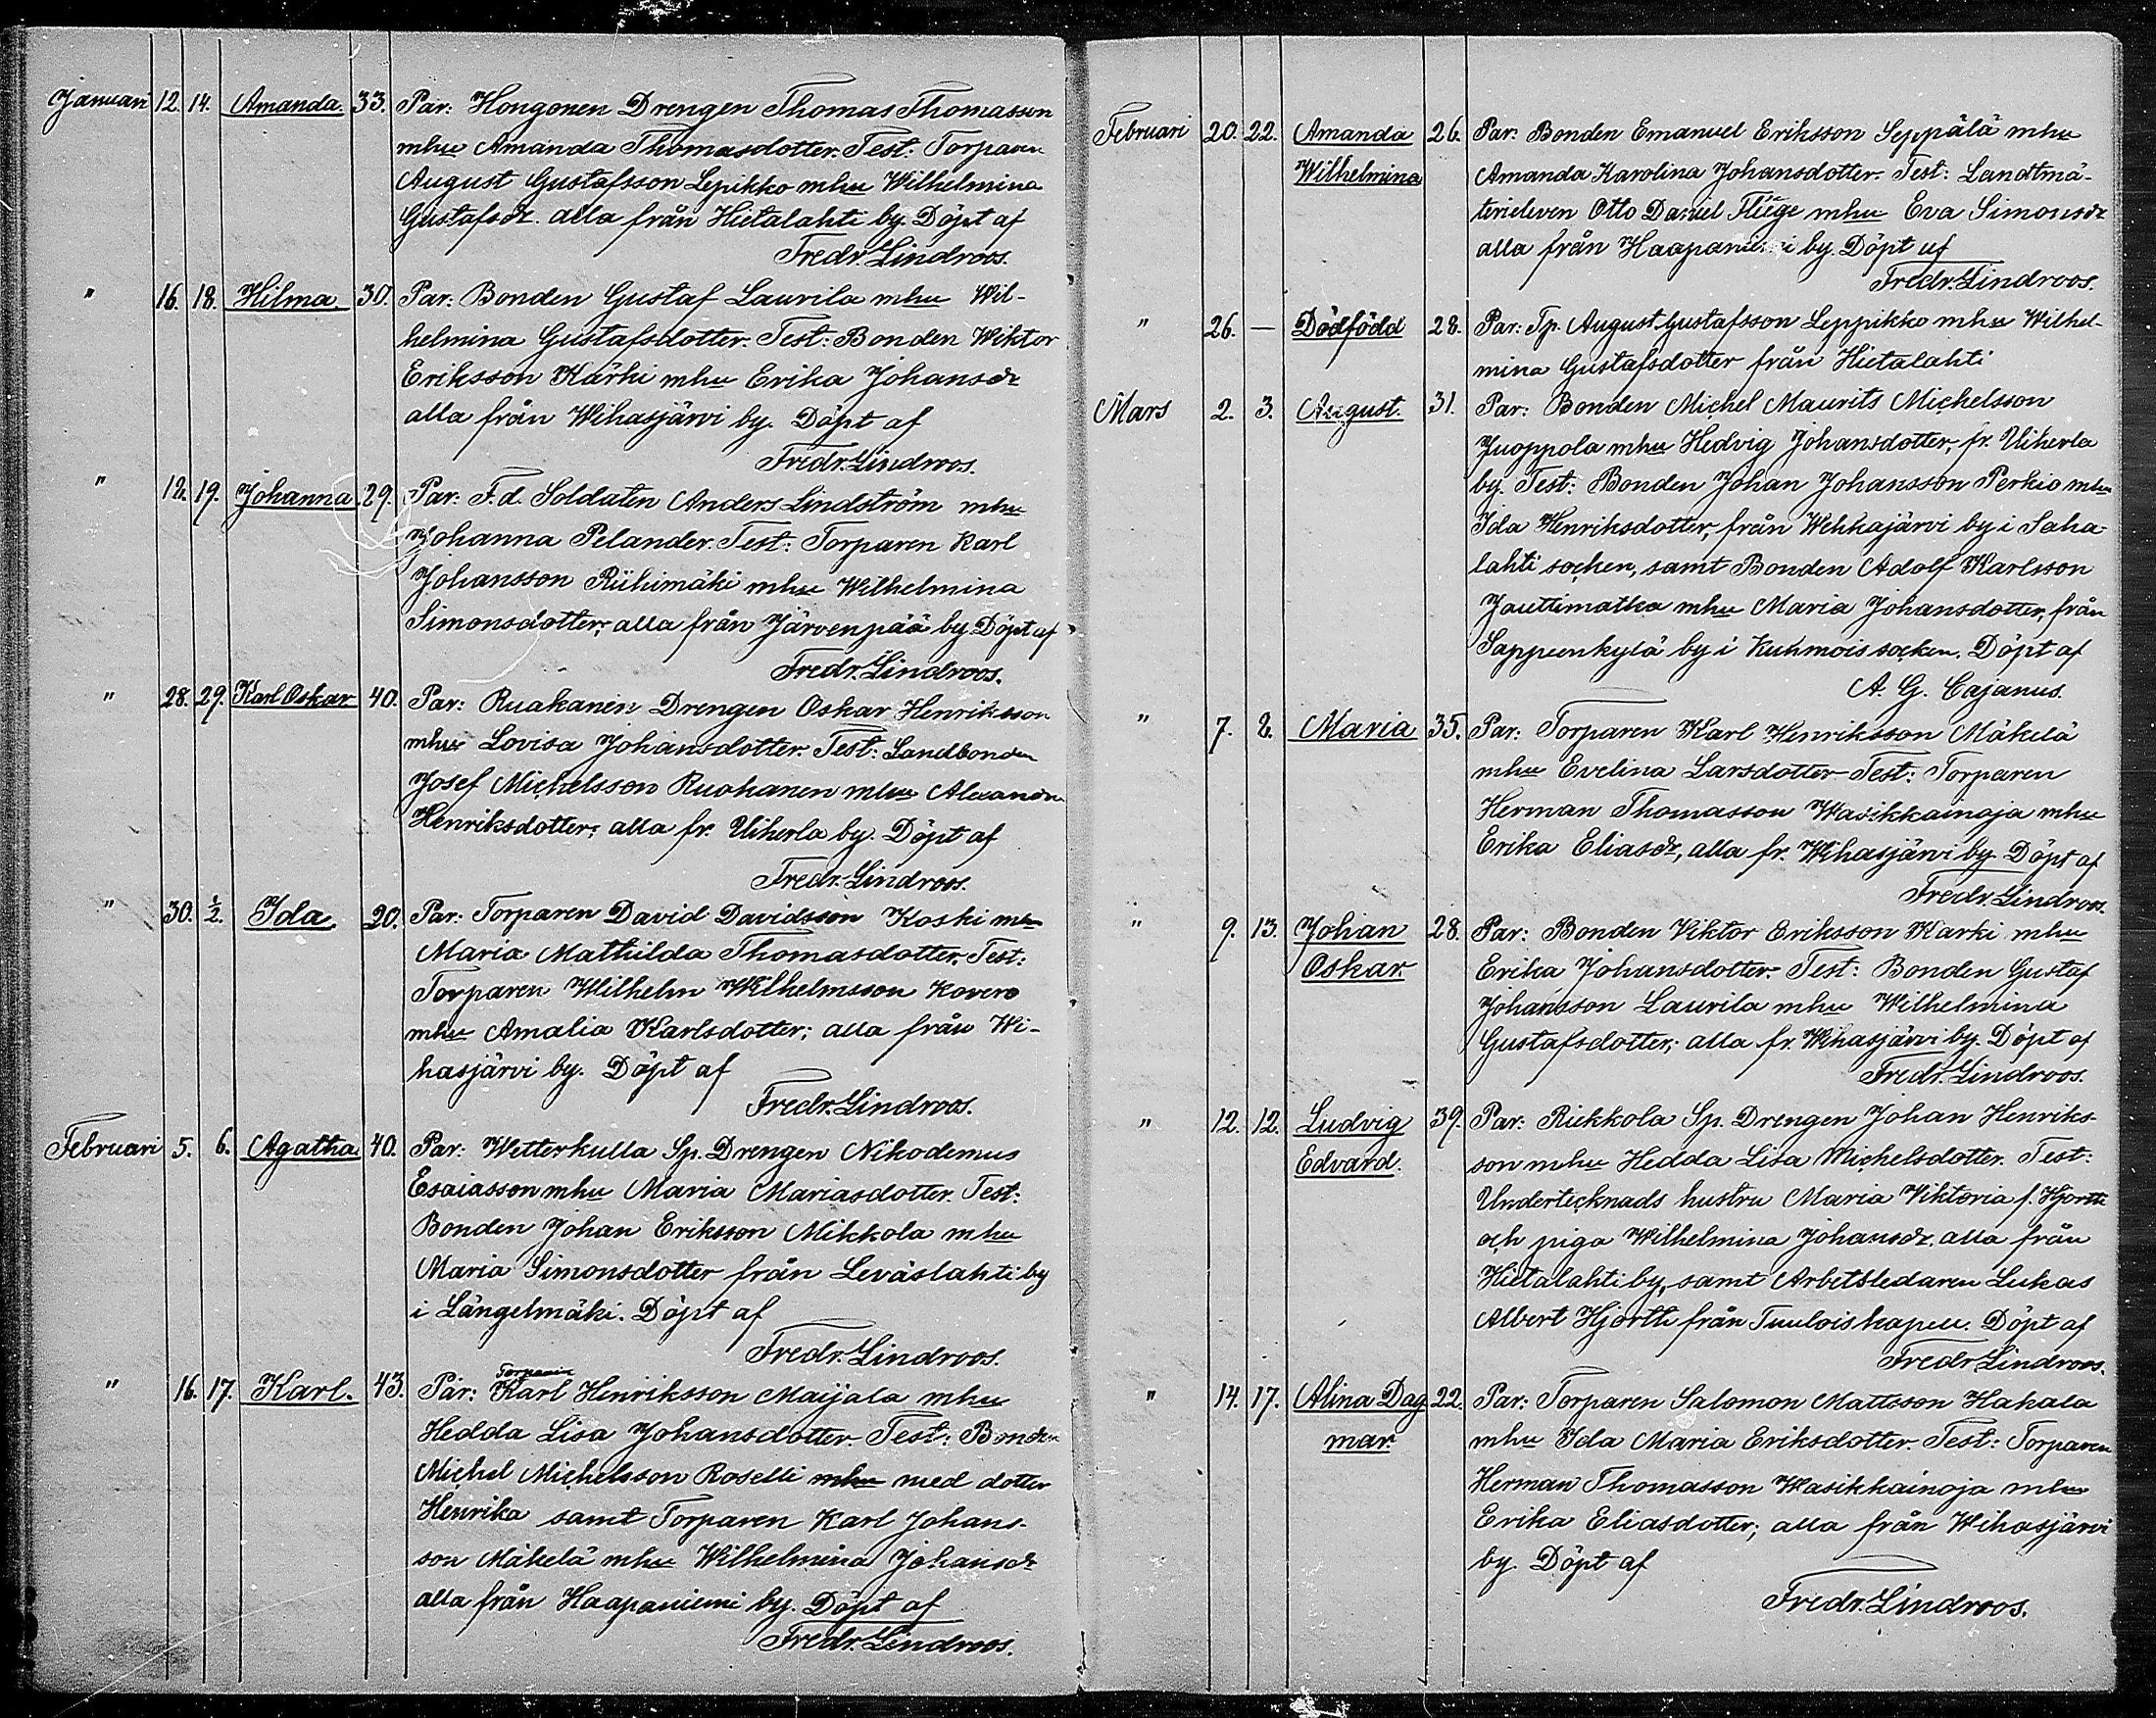 Januari 12. 14. Amanda. 33. Par: Hongonen Drengen Thomas Thomasson
mhu Amanda Thomasdotter. Test: Torparen
August Gustafsson Lepikko mhu Wilhelmina
Gustafsdr. alla från Hietalahti by. Döpt af
Fredr. Lindroos.
" 16. 18. Hilma. 30. Par: Bonden Gustaf Laurila mhu Wil-
helmina Gustafsdotter. Test: Bonden Wiktor
Eriksson Kärki mhu Erika Johansdr
alla från Wihasjärvi by. Döpt af
Fredr. Lindroos.
" 18. 19. Johanna 29. Par: F.d. Soldaten Anders Lindström mhu
Johanna Pelander. Test: Torparen Karl
Johansson Riihimäki mhu Wilhelmina
Simonsdotter; alla från Järvenpää by Döpt af
Fredr. Lindroos.
" 28. 29. Karl Oskar 40. Par: Ruakanen Drengen Oskar Henriksson
mhu Lovisa Johansdotter. Test: Landbonden
Josef Michelsson Ruohanen mhu Alexandra
Henriksdotter; alla fr. Uiherla by. Döpt af
Fredr. Lindroos.
" 30. 1/2. Ida. 20. Par: Torparen David Davidsson Koski mhu
Maria Mathilda Thomasdotter. Test:
Torparen Wilhelm Wilhelmsson Kovero
mhu Amalia Karlsdotter; alla från Wi-
hasjärvi by. Döpt af
Fredr. Lindroos.
Februari 5. 6. Agatha. 40. Par: Wetterkulla Sp. Drengen Nikodemus
Esaiasson mhu Maria Mariasdotter. Test:
Bonden Johan Eriksson Mikkola mhu
Maria Simonsdotter från Leväslahti by
i Längelmäki. Döpt af
Fredr. Lindroos.
" 16. 17. Karl. 43. Par: Torparen Karl Henriksson Maijala mhu
Hedda Lisa Johansdotter. Test: Bonden
Michel Michelsson Roselli mhu med dotter
Henrika samt Torparen Karl Johans-
son Mäkelä mhu Wilhelmina Johansdr
alla från Haapaniemi by. Döpt af
Fredr. Lindroos.
Februari 20. 22. Amanda 26. Par: Bonden Emanuel Eriksson Seppälä mhu
Wilhelmina Amanda Karolina Johansdotter. Test: Landtmä-
terieleven Otto Daniel Flüge mhu Eva Simonsdr
alla från Haapaniemi by. Döpt af
Fredr. Lindroos.
" 26. — Dödfödd 28. Par: Tp. August Gustafsson Leppikko mhu Wilhel-
mina Gustafsdotter från Hietalahti
Mars 2. 3. August. 31. Par: Bonden Michel Maurits Michelsson
Juoppola mhu Hedvig Johansdotter, fr. Uiherla
by. Test: Bonden Johan Johansson Perkio mhu
Ida Henriksdotter, från Wehkajärvi by i Saha-
lahti socken, samt Bonden Adolf Karlsson
Jauttimatka mhu Maria Johansdotter, från
Sappeenkylä by i Kuhmois socken. Döpt af
A. G. Cajanus.
" 7. 8. Maria 35. Par: Torparen Karl Henriksson Mäkelä
mhu Evelina Larsdotter Test: Torparen
Herman Thomasson Wasikkainoja mhu
Erika Eliasdr, alla fr. Wihasjärvi by Döpt af
Fredr. Lindroos.
" 9. 13. Johan 28. Par: Bonden Viktor Eriksson Karki mhu
Oskar. Erika Johansdotter. Test: Bonden Gustaf
Johansson Laurila mhu Wilhelmina
Gustafsdotter; alla fr. Wihasjärvi by. Döpt af
Fredr. Lindroos.
" 12. 12. Ludvig 39. Par: Riekkola Sp. Drengen Johan Henriks-
Edvard. son mhu Hedda Lisa Michelsdotter. Test:
Undertecknads hustru Maria Viktoria f. Hjortti
och piga Wilhelmina Johansdr. alla från
Hietalahti by, samt Arbetsledaren Lukas
Albert Hjortti från Tuulois kapell. Döpt af
Fredr. Lindroos.
" 14. 17. Alina Dag 22. Par: Torparen Salomon Mattsson Hakala
mar. mhu Ida Maria Eriksdotter. Test: Torparen
Herman Thomasson Wasikkainoja mhu
Erika Eliasdotter; alla från Wihasjärvi
by Döpt af
Fredr. Lindroos.